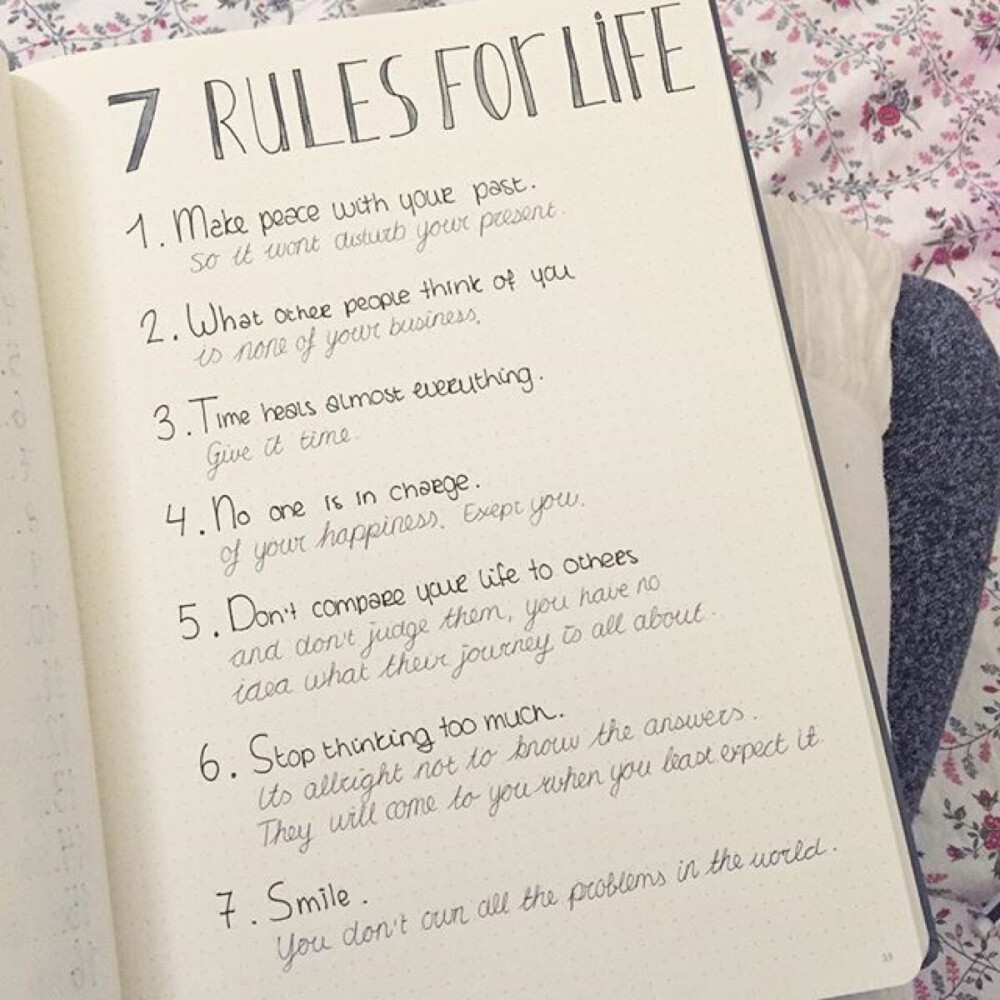 7 RULES FOR LIFE
1. Make peace with your past.
so it wont disturb your present.
2. What other people think of you
is none of your business.
3. Time heals almost everything.
Give it time.
4. No one is in charge.
of your happiness. Exept you.
5. Don't compare your life to others
and don't judge them, you have no
idea what their journey is all about.
6. Stop thinking too much.
Its allright not to know the answers.
They will come to you when you least expect it.
7. Smile.
You don't own all the problems in the world.